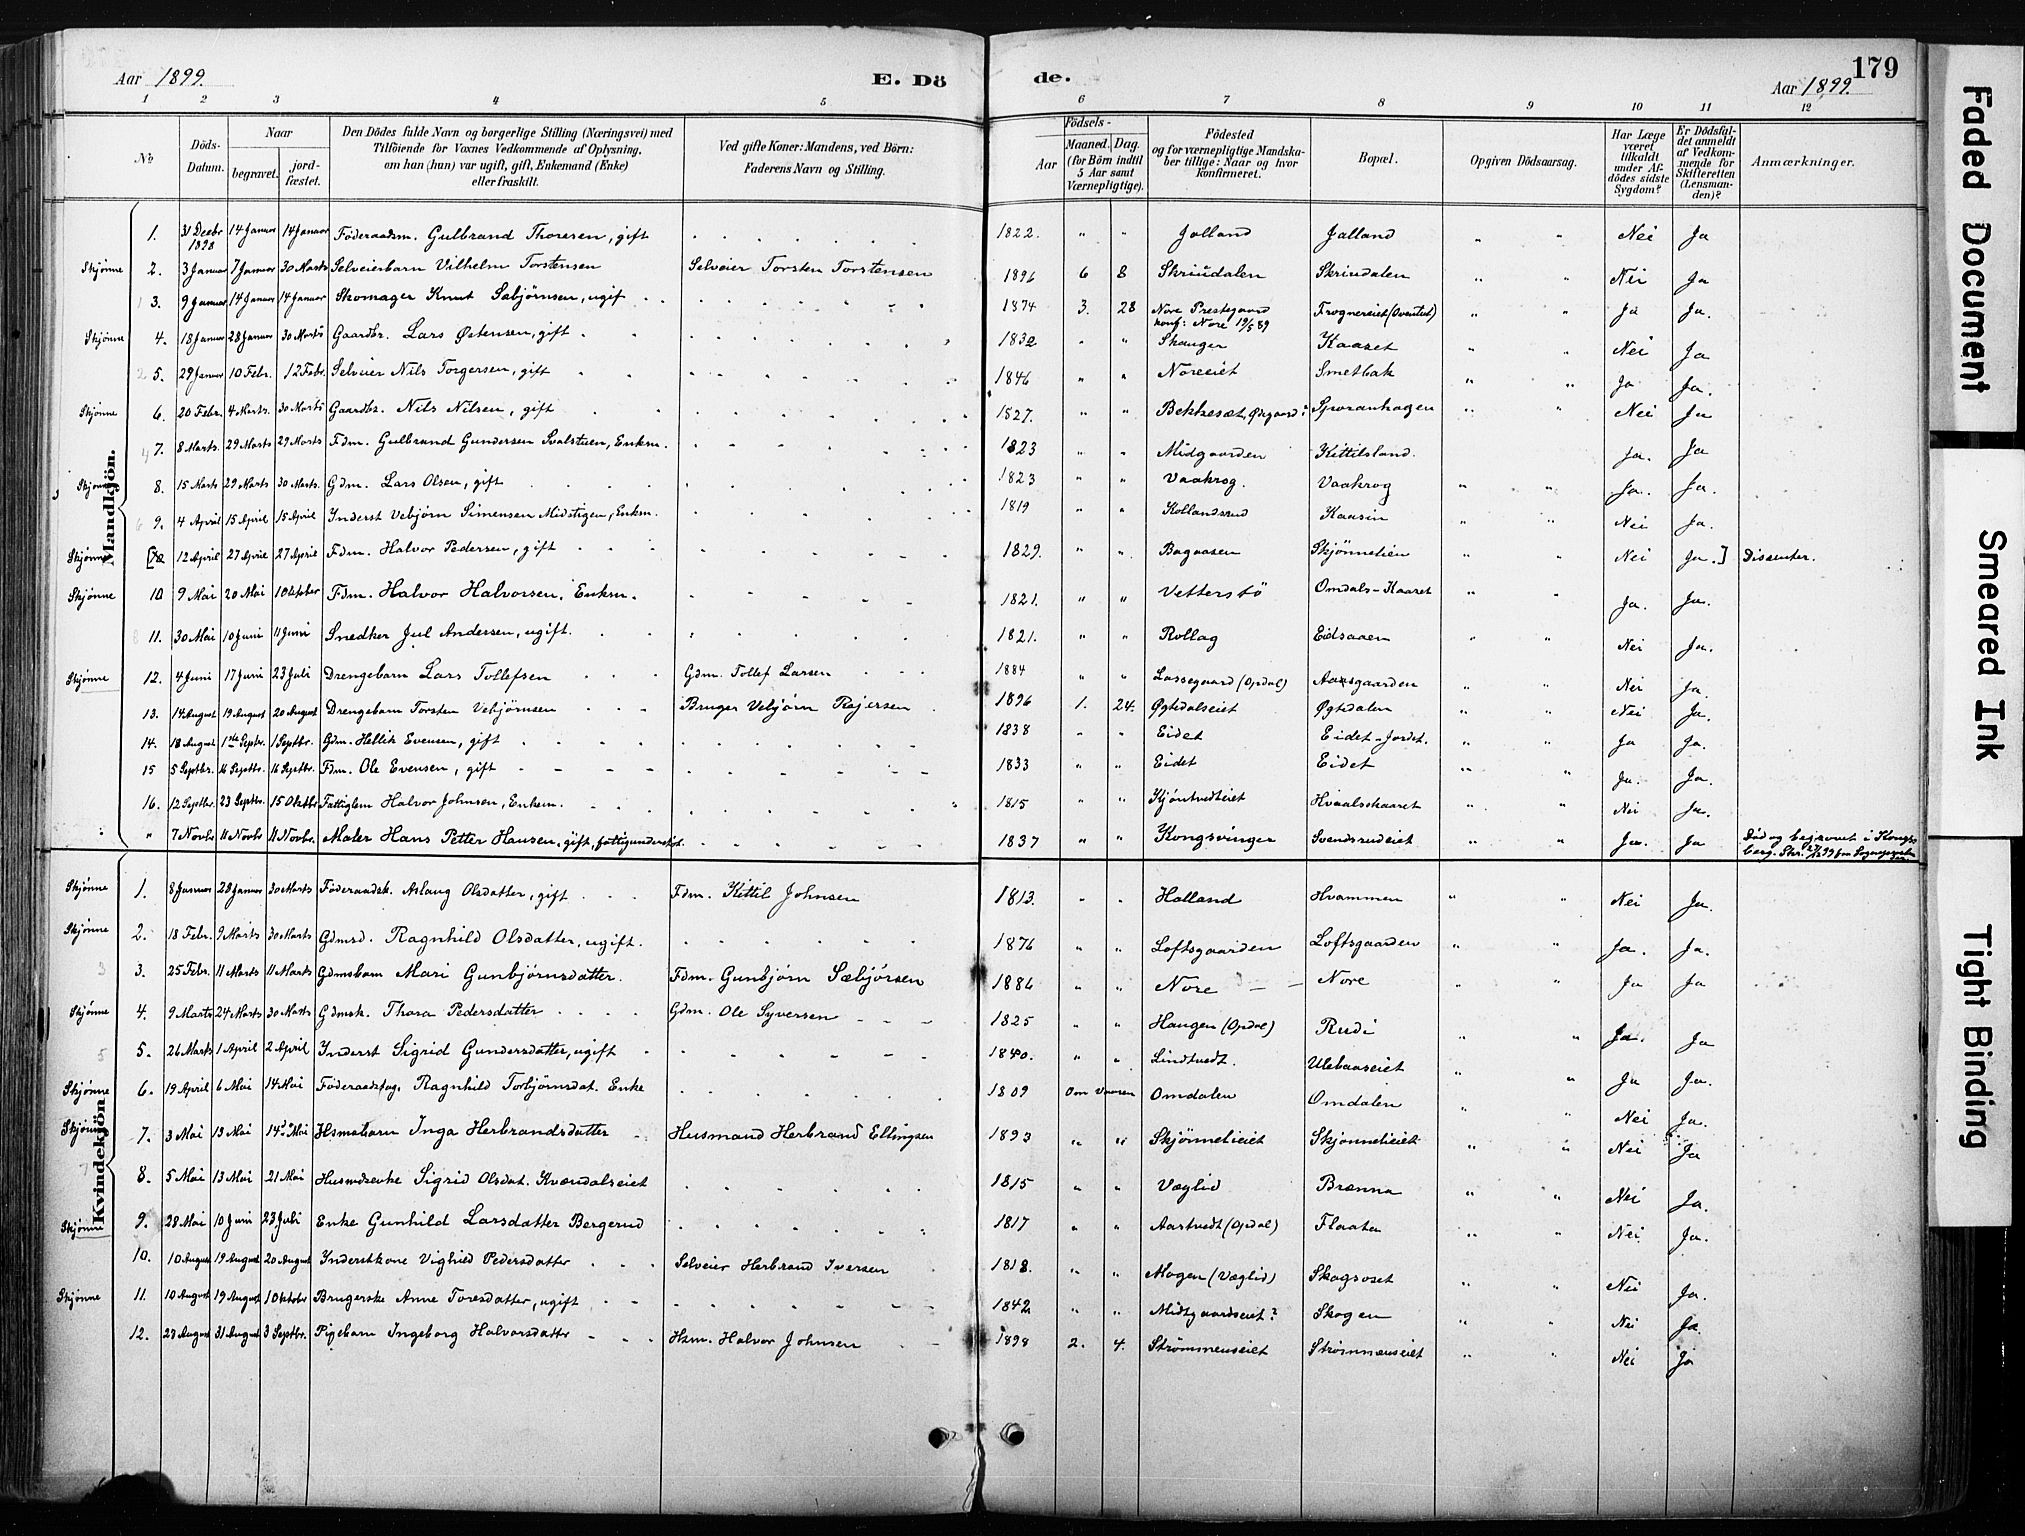 Aar 1899. E. Dö de. Aar 1899. 179
1 2 3 4 5 6 7 8 9 10 11 12
No Döds-Datum. Naar begravet. jordfæstet. Den Dödes fulde Navn og borgerlige Stilling (Næringsvei) med Tilföiende for Voxnes Vedkommende af Oplysning, om han (hun) var ugift, gift, Enkemand (Enke) eller fraskilt. Ved gifte Koner: Mandens, ved Börn: Faderens Navn og Stilling. Födsels- Aar Maaned. Dag. (for Börn indtil 5 Aar samt Værnepligtige). Födested og for værnepligtige Mandskaber tillige: Naar og hvor konfirmeret. Bopæl. Opgiven Dödsaarsag. Har Læge været tilkaldt under Afdödes sidste Sygdom? Er Dödsfaldet anmeldt af Vedkommende for Skifteretten (Lensmanden)? Anmærkninger.
Mandkjön.
1. 31 Decbr 1898 14 Januar 14 Januar Föderaadsm. Gulbrand Thoresen, gift 1822. " " Jolland Jalland " " Nei Ja
Skjønne 2. 3 Januar 7 Januar 30 Marts Selveierbarn Vilhelm Torstensen Selveier Torsten Torstensen 1896 6 8 Skriudalen Skriudalen " " Nei Ja
3. 9 Januar 14 Januar 14 Januar Skomager Knut Sebjørnsen, ugift 1874 3. 28 Nore Prestegaard konf: Nore 19/5 89 Frognereiet (Oventet) " " Ja Ja.
Skjønne 4. 18 Januar 28 Januar 30 Marts Gaardbr. Lars Østensen, gift 1832 " " Skauger Kaaset " " Nei Ja
5. 29 Januar 10 Febr. 12 Febr. Selveier Nils Torgersen, gift 1846 " " Noreeiet Smetbak " " Ja Ja.
Skjønne 6. 20 Febr. 4 Marts. 30 Marts Gaardbr. Nils Nilsen, gift 1827. " " Bekkesæt, Øygaard? Sporanhagen " " Nei Ja
7. 8 Marts. 29 Marts 29 Marts Fdm. Gulbrand Gundersen Svalstuen, Enkm. 1823 " " Midgaarden Kittilsland. Ja. Ja
Skjønne 8. 15 Marts 29 Marts 30 Marts. Gdm. Lars Olsen, gift 1823 " " Vaakrog. Vaakrog " " Ja. Ja.
9. 4 April 15 April 15 April Inderst Vebjørn Simensen Midstigen, Enkm. 1819 " " Kollandsrud Kaasin " " Nei Ja.
Skjønne 12 April 27 April 27 April Fdm. Halvor Pedersen, gift 1829. " " Bagaasen Skjønnelien " " Nei Ja.] Dissenter.
Skjønne 10 9 Mai 20 Mai 1 Oktober Fdm. Halvor Halvorsen, Enkm. 1821. " " Vetterstö Omdals-Kaaset " " Ja. Ja.
11. 30 Mai 10 Juni 11 Juni Snedker Jul Andersen, ugift. 1821. " " Rollag Eidsaaen " " Nei Ja.
Skjønne 12. 4 Juni 17 Juni 23 Juli Drengebarn Lars Tollefsen Gdm. Tollef Larsen 1884 " " Lassegaard (Opdal) Aasgaarden " " Nei Ja.
13. 14 August 19 August 20 August Drengebarn Torsten Vebjörnsen Bruger Vebjørn Rejersen 1896 1. 24. Øgtedalseiet Øgtedalen " " Nei Ja.
14. 18 August 1ste Septbr. 1 Septbr. Gdm. Hellik Evensen, gift 1838 " " Eidet Eidet-Jordet. " " Ja Ja.
15 5 Septbr. 16 Septbr. 16 Septbr. Fdm. Ole Evensen, gift 1833 " " Eidet Eidet " " Ja. Ja.
16. 12 Septbr. 23 Septbr. 15 Oktbr Fattiglem Halvor Johnsen, Enkem. 1815 " " Kjöntvedteiet Hvaalskaaret " " Nei Ja.
" 7 Novbr. 11 Novbr. 11 Novbr. Maler Hans Petter Hansen, gift, fattigunderstøt. 1837 " " Kongsvinger Svendsrudeiet " " Ja. Ja Död og begravet i Kongsberg.
Kvindekjön.
Skjønne 1. 8 Januar 28 Januar 30 Marts Föderaadsk. Aslaug Olsdatter, gift Fdm. Kittil Johnsen 1813. " " Holland Hvammen " " Nei Ja.
Skjønne 2. 18 Febr. 9 Marts 30 Marts Gdmsd. Ragnhild Olsdatter, ugift. 1876 " " Loftsgaarden Loftsgaarden " " Ja. Ja.
3. 25 Febr. 11 Marts 11 Marts Gdmsbarn Mari Gunbjörnsdatter. Fdm. Gunbjörn Sebjörsen 1886 " " Nore Nore " " Ja Ja
Skjønne 4. 9 Marts 24 Marts 30 Marts Gdmsk. Thora Pedersdatter Gdm. Ole Syversen 1825 " " Haugen (Opdal) Rudi " " Ja. Ja
5. 26 Marts 1 April 2 April Inderst Sigrid Gundersdatter, ugift 1840. " " Lindtvedt. Ulebaaseiet " " Ja Ja.
Skjønne 6. 19 April 6 Mai 14 Mai Ragnhild Torbjörnsdat. Enke 1809 Om Vaaren Omdalen Omdalen " " Nei Ja.
Skjønne 7. 3 Mai 13 Mai 14 Mai Hsmsbarn Inga Herbrandsdatter Husmand Herbrand Ellingsen 1893 " " Skjönnelieiet Skjönnelieiet " " Nei Ja
8. 5 Mai 13 Mai 21 Mai Husmdsenke Sigrid Olsdat. Kvændalseiet 1815 " " Væglid Brænna " " Nei Ja.
Skjønne 9. 28 Mai 10 Juni 23 Juli Enke Gunhild Larsdatter Bergerud 1817 " " Aastvedt (Opdal) Flaaten " " Nei Ja.
10. 10 August 19 August 20 August Inderstkone Vighild Pedersdatter Selveier Herbrand Iversen 1818. " " Mogen (Væglid) Skogsoset " " Nei Ja.
Skjønne 11. 10 August 19 August 1 Oktober Brugerske Anne Toresdatter, ugift 1842 " " Midtgaardseiet? Skogen " " Nei Ja.
12. 23 August 31 August 3 Septbr. Pigebarn Ingeborg Halvorsdatter Hsm. Halvor Johnsen 1898 2. 4. Strømmenseiet Strømmenseiet " " Nei Ja
Faded Document
Smeared Ink
Tight Binding